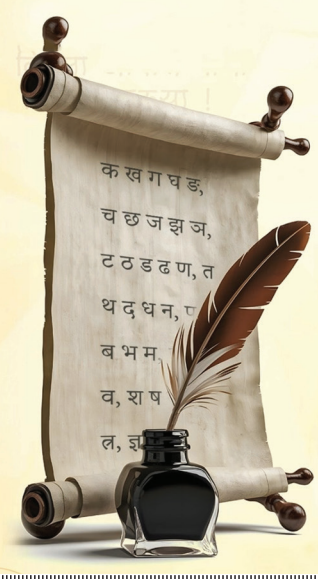 क ख ग घ ङ,
च छ ज झ ञ,
ट ठ ड ढ ण, त
थ द ध न,
ब भ म
व, श ष